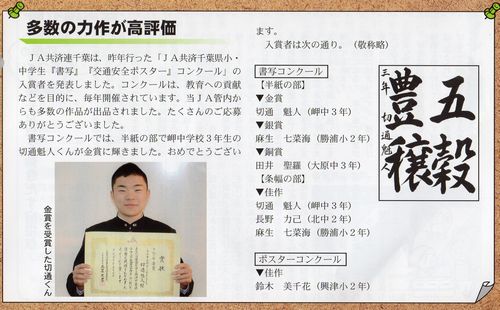 多数の力作が高評価
ＪＡ共済連千葉は、昨年行った「ＪＡ共済千葉県小・
中学生『書写』『交通安全ポスター』コンクール」の
入賞者を発表しました。コンクールは、教育への貢献
などを目的に、毎年開催されています。当ＪＡ管内か
らも多数の作品が出品されました。たくさんのご応募
ありがとうございました。
書写コンクールでは、半紙の部で岬中学校３年生の
切通魁人くんが金賞に輝きました。おめでとうござい
ます。
入賞者は次の通り。（敬称略）
書写コンクール
【半紙の部】
▼金賞
切通　魁人（岬中３年）
▼銀賞
麻生　七菜海（勝浦小２年）
▼銅賞
田井　聖羅（大原中３年）
【条幅の部】
▼佳作
切通　魁人（岬中３年）
長野　力己（北中２年）
麻生　七菜海（勝浦小２年）
ポスターコンクール
▼佳作
鈴木　美千花（興津小２年）
五穀
豊穣
三年　切通魁人
賞状
金賞を受賞した切通くん